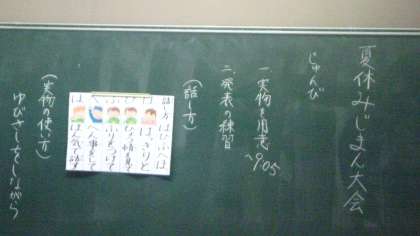 夏休みじまん大会
じゅんび
一 実物を用意
~9:05
二 発表の練習
(話し方)
話し方はひふへほ
は はっきりと
ひ
ふ
へ
ほ ほん気で話す
(実物の使い方)
ゆびさしをしながら